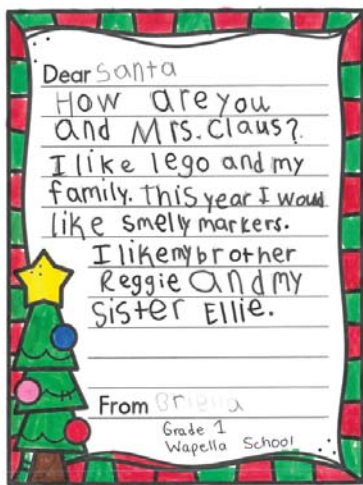 Dear Santa
How are you
and Mrs. Claus?
I like lego and my
family. This year I would
like smelly markers.
I like my brother
Reggie and my
Sister Ellie.
From Briella
Grade 1
Wapella School